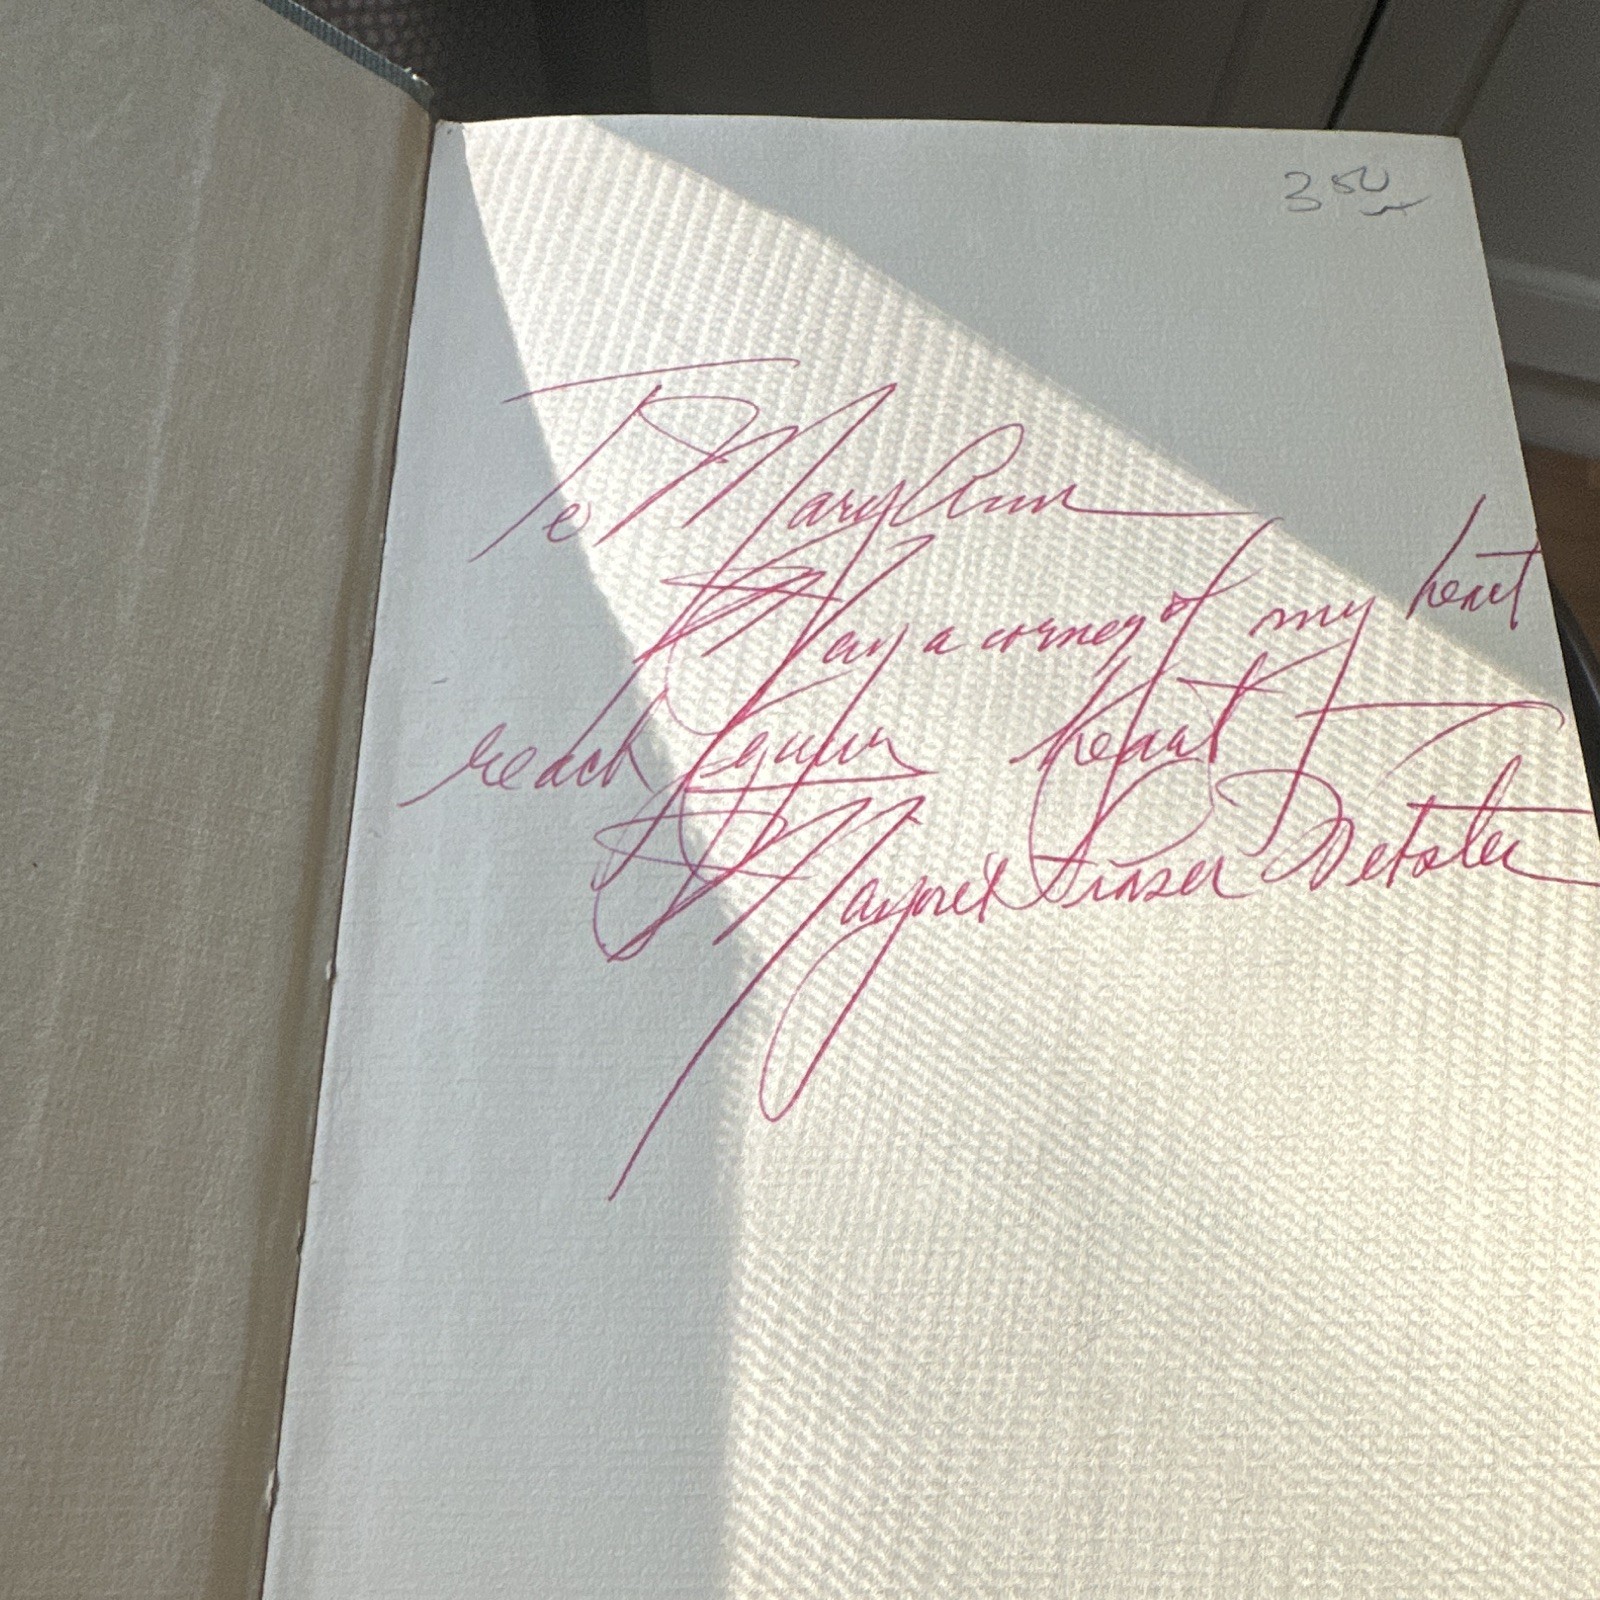 3 50
To Mary Ann
May a corner of my heart
reach your heart
Margaret Fraser Webster